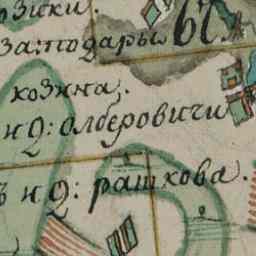 озики.
за: подары 67
козина.
и Q: олберовичи
ъ и Q: рашкова.